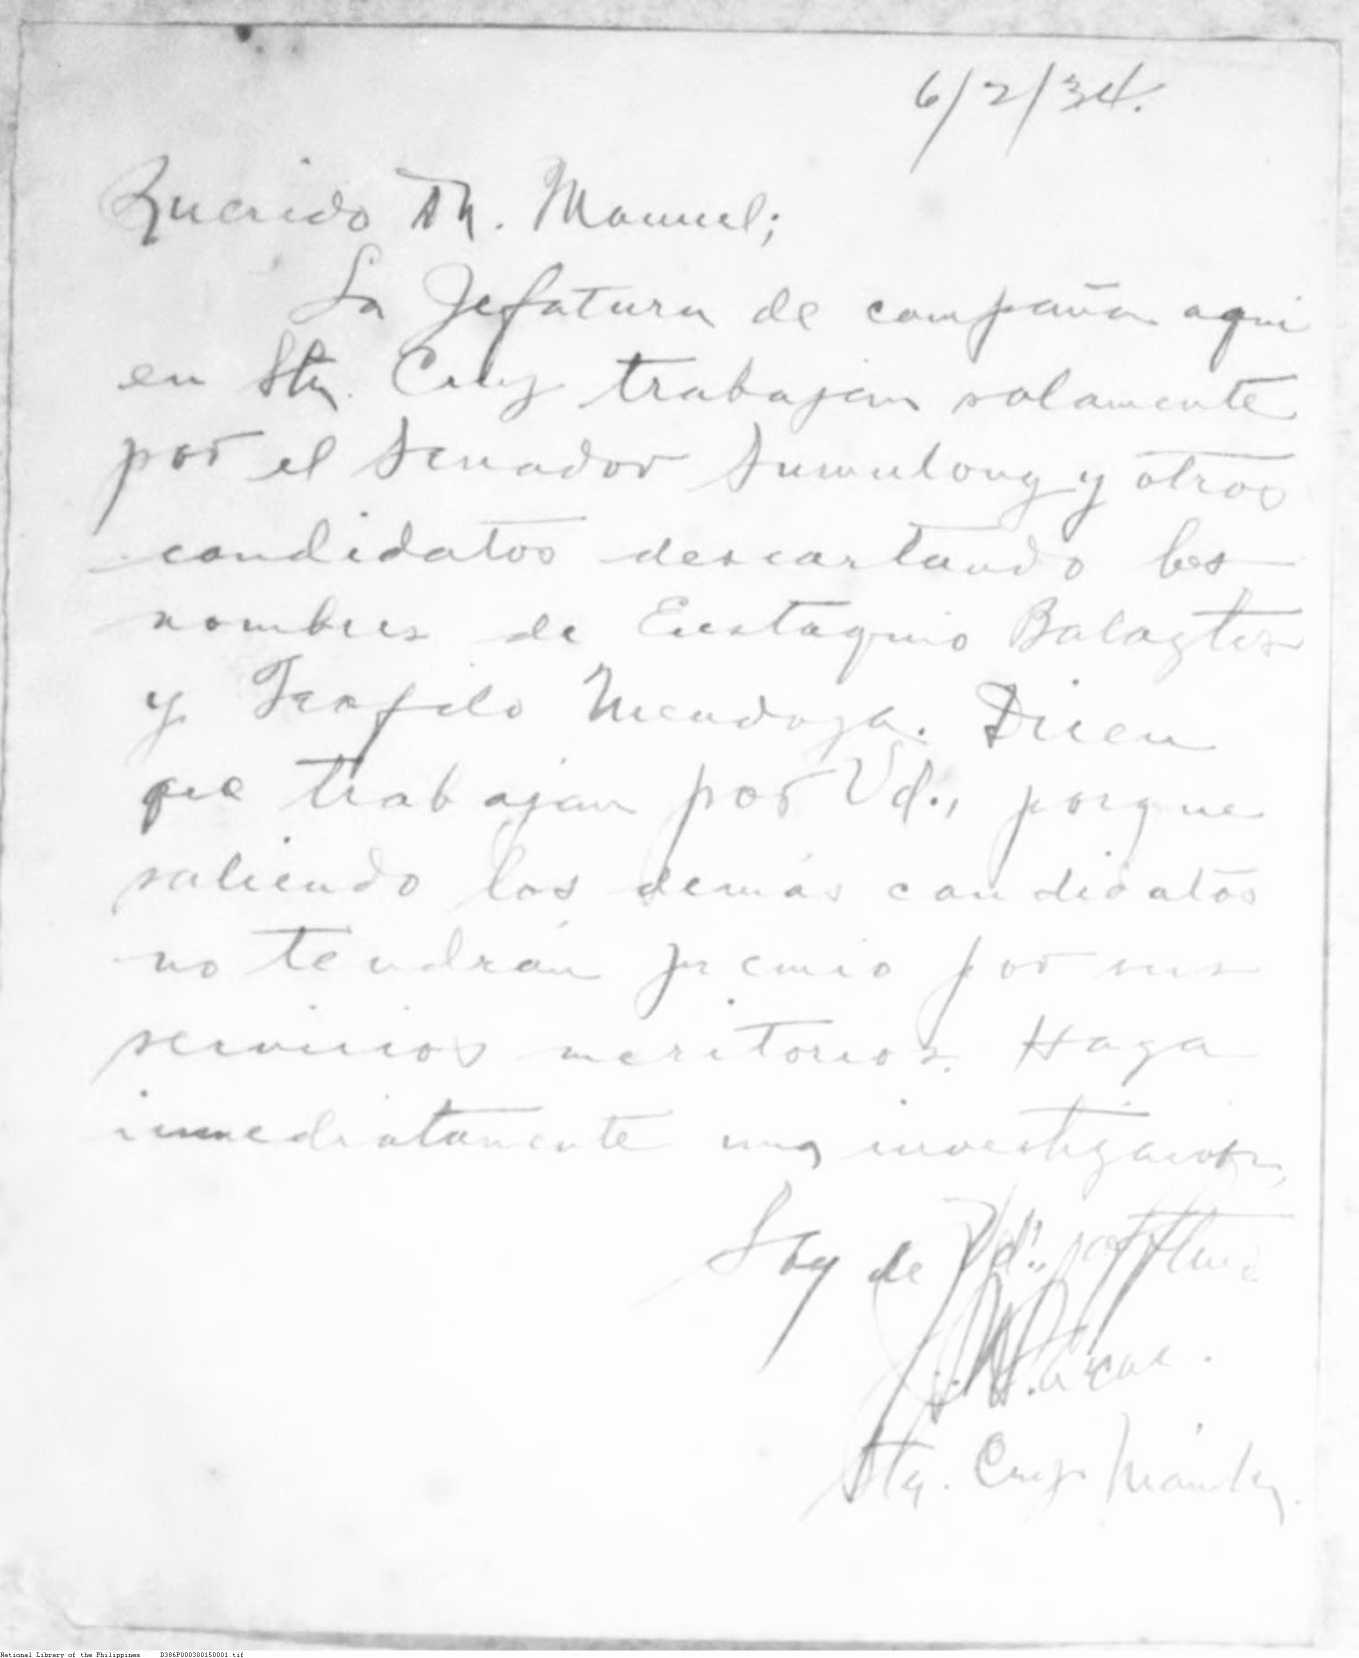 6/2/34.
Querido Dn. Manuel;
La Jefatura de campaña aqui
en Sta. Cruz trabajan solamente
por el Senador Sumulong y otros
candidatos descartando los
nombres de Eustaquio Balagtas
y Teofilo Mendoza. Dicen
que trabajan por Vd., porque
saliendo los demás candidatos
no tendrán premio por sus
servicios meritorios. Haga
inmediatamente una investigacion,
Soy de Vd.,
Sta. Cruz Manila.
National Library of the Philippines D386P000300150001.tif